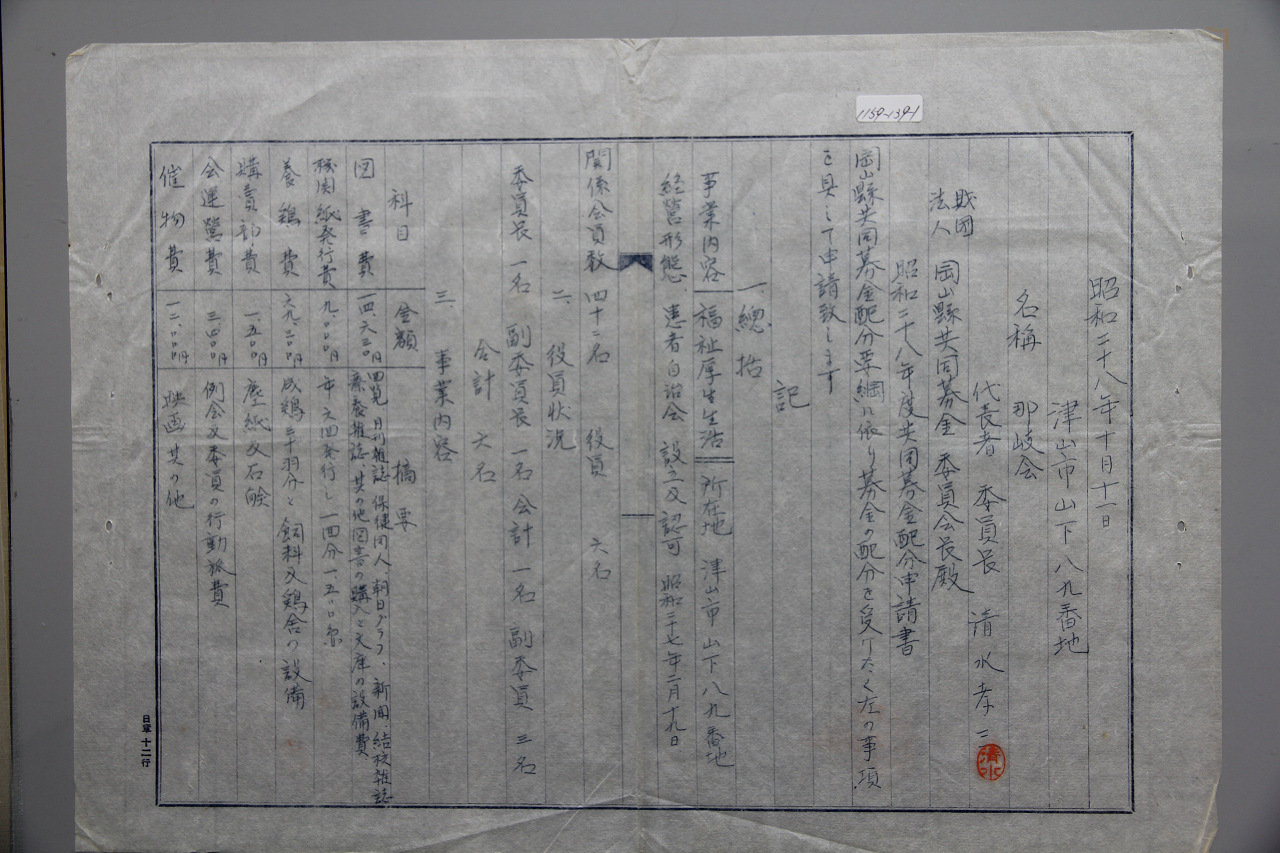 1159-139-1
昭和二十八年十月十一日
津山市山下八九番地
名稱 那岐会
代表者 委員長 清水孝三
清水
財団法人 岡山縣共同募金委員会長殿
昭和二十八年度共同募金配分申請書
岡山縣共同募金配分要綱に依り募金の配分を受けたく左の事項
を具して申請致します
記
一、總括
事業内容 福祉厚生生活 所在地 津山市山下八九番地
経營形態 患者自治会 設立及認可 昭和二十七年二月十九日
関係会員数 四十二名 役員 六名
二、役員状況
委員長 一名 副委員長 一名 会計 一名 副委員 三名
合計 六名
三、事業内容
科目 金額 摘要
図書費 一四、六三〇円 回覧 日刊雑誌 保健同人、朝日グラフ、新聞、結核雑誌
療養雑誌 其の他図書の購入と文庫の設備費
機関紙発行費 九、〇〇〇円 年六回発行し一回分一、五〇〇
養鶏費 六九、二〇〇円 成鶏二十羽分と飼料及鶏舎の設備
購賣部費 一、五〇〇円 塵紙及石鹸
会運營費 三、四〇〇円 例会及委員の行動旅費
催物費 一二、〇〇〇円 映画其の他
日章 十二行